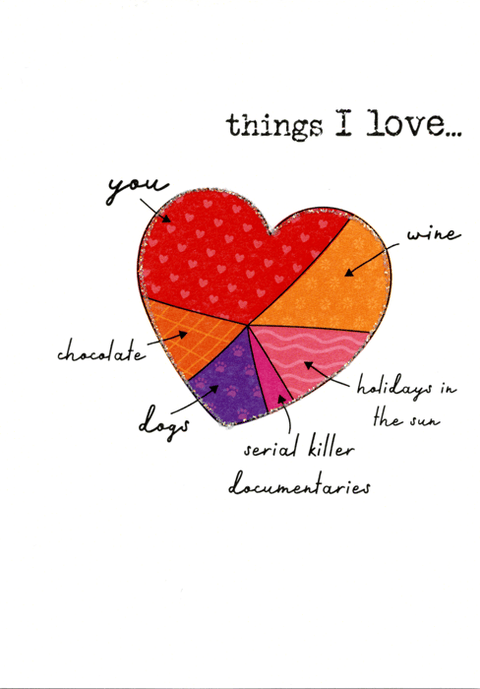 things I love...
you
wine
chocolate
holidays in
the sun
dogs
serial killer
documentaries